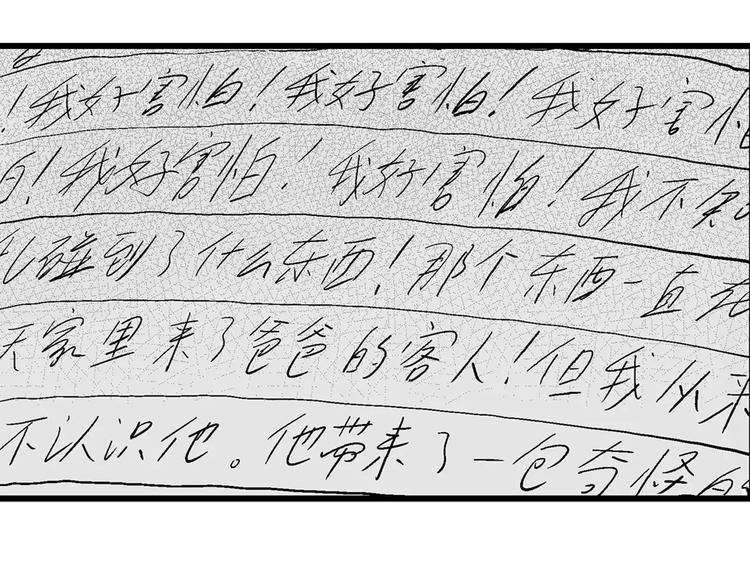 ！我好害怕！我好害怕！我好害怕
怕！我好害怕！我好害怕！我不知
碰到了什么东西！那个东西一直在
天家里来了爸爸的客人！但我从来
不认识他。他带来了一包奇怪的